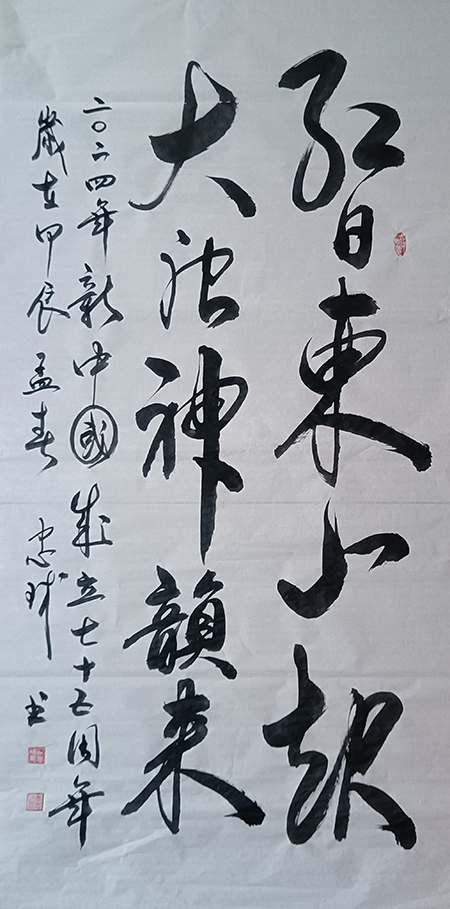 红日東山起
大神韻来
二〇二四年新中國成立七十五周年
歲在甲辰孟春 忠球 书